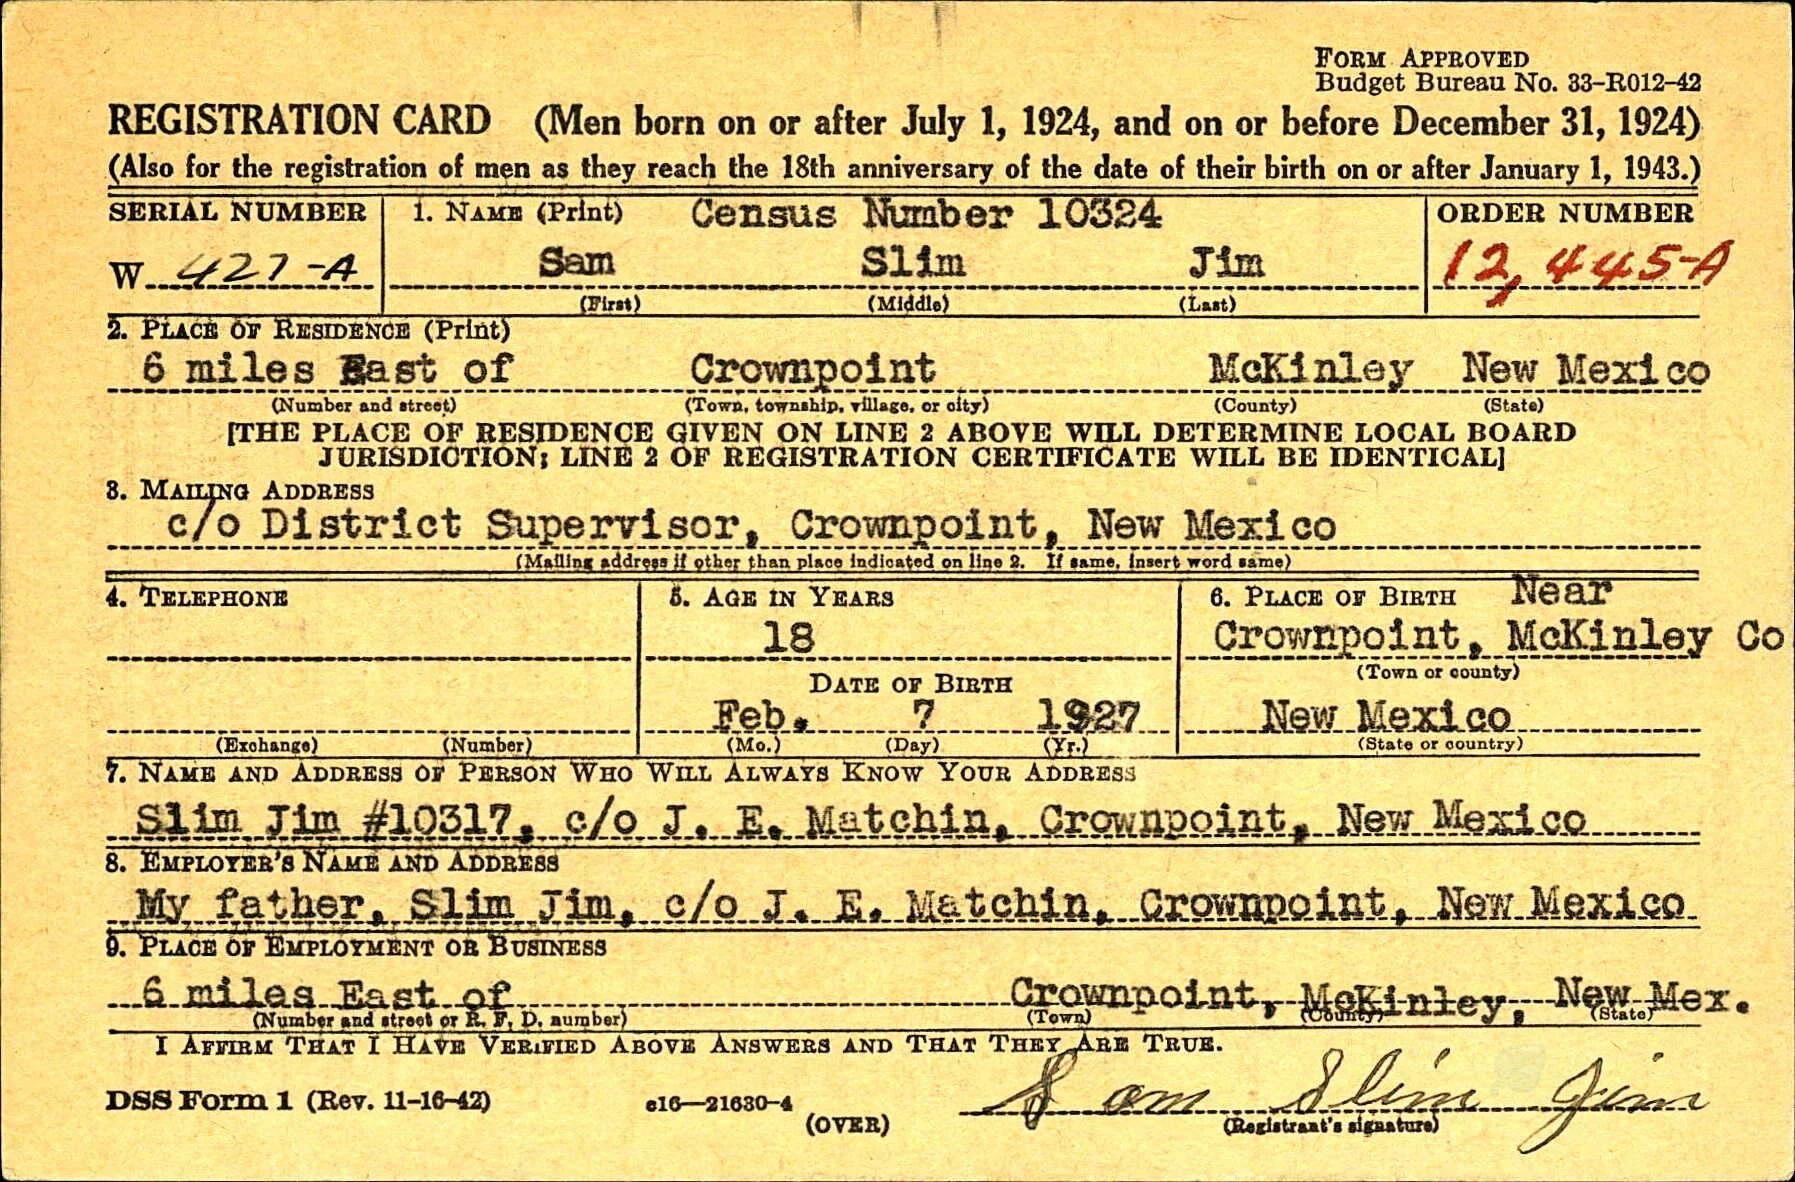 FORM APPROVED
Budget Bureau No. 33-R012-42
REGISTRATION CARD (Men born on or after July 1, 1924, and on or before December 31, 1924)
(Also for the registration of men as they reach the 18th anniversary of the date of their birth on or after January 1, 1943.)
SERIAL NUMBER 1. NAME (Print) Census Number 10324 ORDER NUMBER
W 427-A Sam Slim Jim 12,445-A
(First) (Middle) (Last)
2. PLACE OF RESIDENCE (Print)
6 miles East of Crownpoint McKinley New Mexico
(Number and street) (Town, township, village, or city) (County) (State)
[THE PLACE OF RESIDENCE GIVEN ON LINE 2 ABOVE WILL DETERMINE LOCAL BOARD
JURISDICTION; LINE 2 OF REGISTRATION CERTIFICATE WILL BE IDENTICAL]
3. MAILING ADDRESS
c/o District Supervisor, Crownpoint, New Mexico
(Mailing address if other than place indicated on line 2. If same, insert word same)
4. TELEPHONE 5. AGE IN YEARS 6. PLACE OF BIRTH Near
18 Crownpoint, McKinley Co
DATE OF BIRTH (Town or county)
Feb. 7 1927 New Mexico
(Exchange) (Number) (Mo.) (Day) (Yr.) (State or country)
7. NAME AND ADDRESS OF PERSON WHO WILL ALWAYS KNOW YOUR ADDRESS
Slim Jim #10317, c/o J. E. Matchin, Crownpoint, New Mexico
8. EMPLOYER'S NAME AND ADDRESS
My father, Slim Jim, c/o J. E. Matchin, Crownpoint, New Mexico
9. PLACE OF EMPLOYMENT OR BUSINESS
6 miles East of Crownpoint, McKinley, New Mex.
(Number and street or R. F. D. number) (Town) (County) (State)
I AFFIRM THAT I HAVE VERIFIED ABOVE ANSWERS AND THAT THEY ARE TRUE.
DSS Form 1 (Rev. 11-16-42) c16-21630-4 Sam Slim Jim
(OVER) (Registrant's signature)